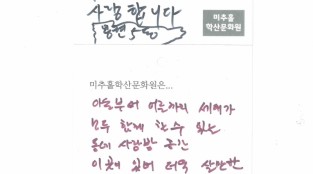 사랑합니다
용현5동
미추홀
학산문화원
미추홀학산문화원은...
아들부터 어른까지 세대가
모두 함께 할 수 있는
동네 사랑방 같은
이곳에 있어 더욱 살만한